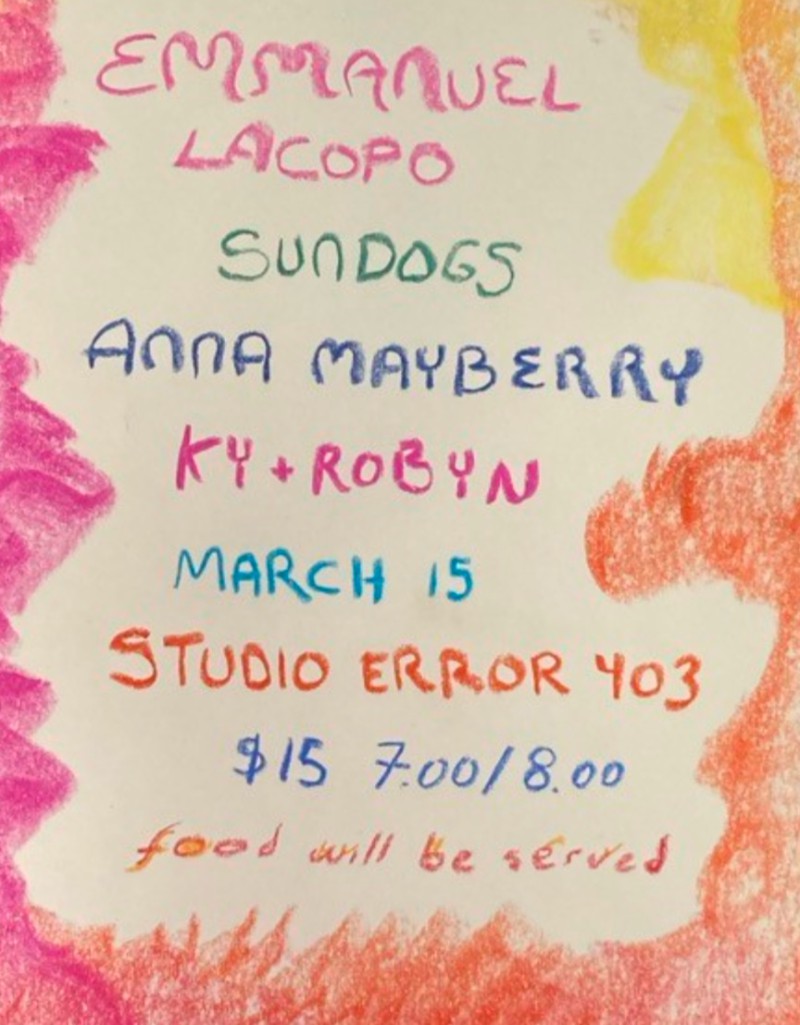 EMMANUEL
LACOPO
SUNDOGS
ANNA MAYBERRY
KY + ROBYN
MARCH 15
STUDIO ERROR 403
$15 7.00/8.00
food will be served